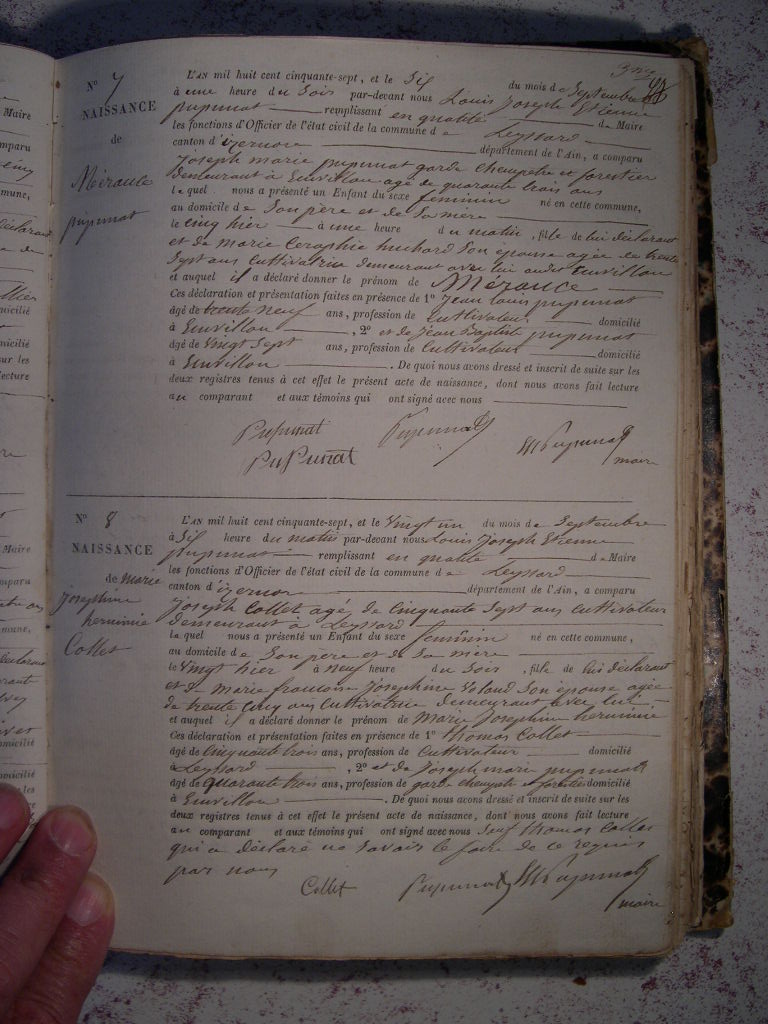 N° 7
NAISSANCE
de
Mérance
pupunat
L'AN mil huit cent cinquante-sept, et le Six du mois de Septembre
à une heure du Soir par-devant nous Louis Joseph Etienne
pupunat remplissant en qualité de Maire
les fonctions d'Officier de l'état civil de la commune de Leyssard
canton d'izernore département de l'Ain, a comparu
Joseph marie pupunat garde champetre et forestier
demeurant à Solvillon agé de quarante trois ans
lequel nous a présenté un Enfant du sexe feminin né en cette commune,
au domicile de Son père et de Sa mère
le Cinq hier à une heure du matin, fille de lui déclarant
et de Marie Ceraphie huchard Son épouse agée de trente
Sept ans Cultivatrice demeurant avec lui audit
et auquel il a déclaré donner le prénom de Mérance
Ces déclaration et présentation faites en présence de 1° Jean Louis pupunat
âgé de trente neuf ans, profession de Cultivateur domicilié
à , 2° et de Jean Baptiste pupunat
âgé de Vingt Sept ans, profession de Cultivateur domicilié
à . De quoi nous avons dressé et inscrit de suite sur les
deux registres tenus à cet effet le présent acte de naissance, dont nous avons fait lecture
au comparant et aux témoins qui ont signé avec nous
Pupunat Pupunat
PuPunat Pupunat
maire
N° 8
NAISSANCE
de marie
josephine
herminie
Collet
L'AN mil huit cent cinquante-sept, et le Vingt un du mois de Septembre
à Six heure du matin par-devant nous Louis Joseph Etienne
pupunat remplissant en qualité de Maire
les fonctions d'Officier de l'état civil de la commune de Leyssard
canton d'izernore département de l'Ain, a comparu
Joseph Collet agé de Cinquante Sept ans Cultivateur
demeurant à Leyssard
lequel nous a présenté un Enfant du sexe feminin né en cette commune,
au domicile de Son père et de Sa mère
le Vingt hier à neuf heure du Soir, fille de lui déclarant
et de marie francoise Josephine Son épouse agée
de trente Cinq ans Cultivatrice demeurant avec lui
et auquel il a déclaré donner le prénom de Marie Josephine herminie
Ces déclaration et présentation faites en présence de 1° thomas Collet
âgé de Cinquante trois ans, profession de Cultivateur domicilié
à Leyssard , 2° et de Joseph marie pupunat
âgé de quarante trois ans, profession de garde champetre et forestier domicilié
à . De quoi nous avons dressé et inscrit de suite sur les
deux registres tenus à cet effet le présent acte de naissance, dont nous avons fait lecture
au comparant et aux témoins qui ont signé avec nous Sauf thomas Collet
qui a déclaré ne Savoir le faire de ce requis
par nous
Collet Pupunat Pupunat
maire